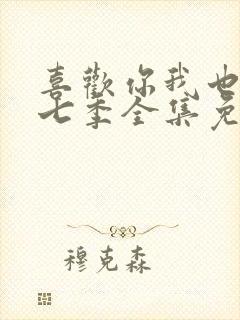 喜歡你我也
七季全集免
穆克森